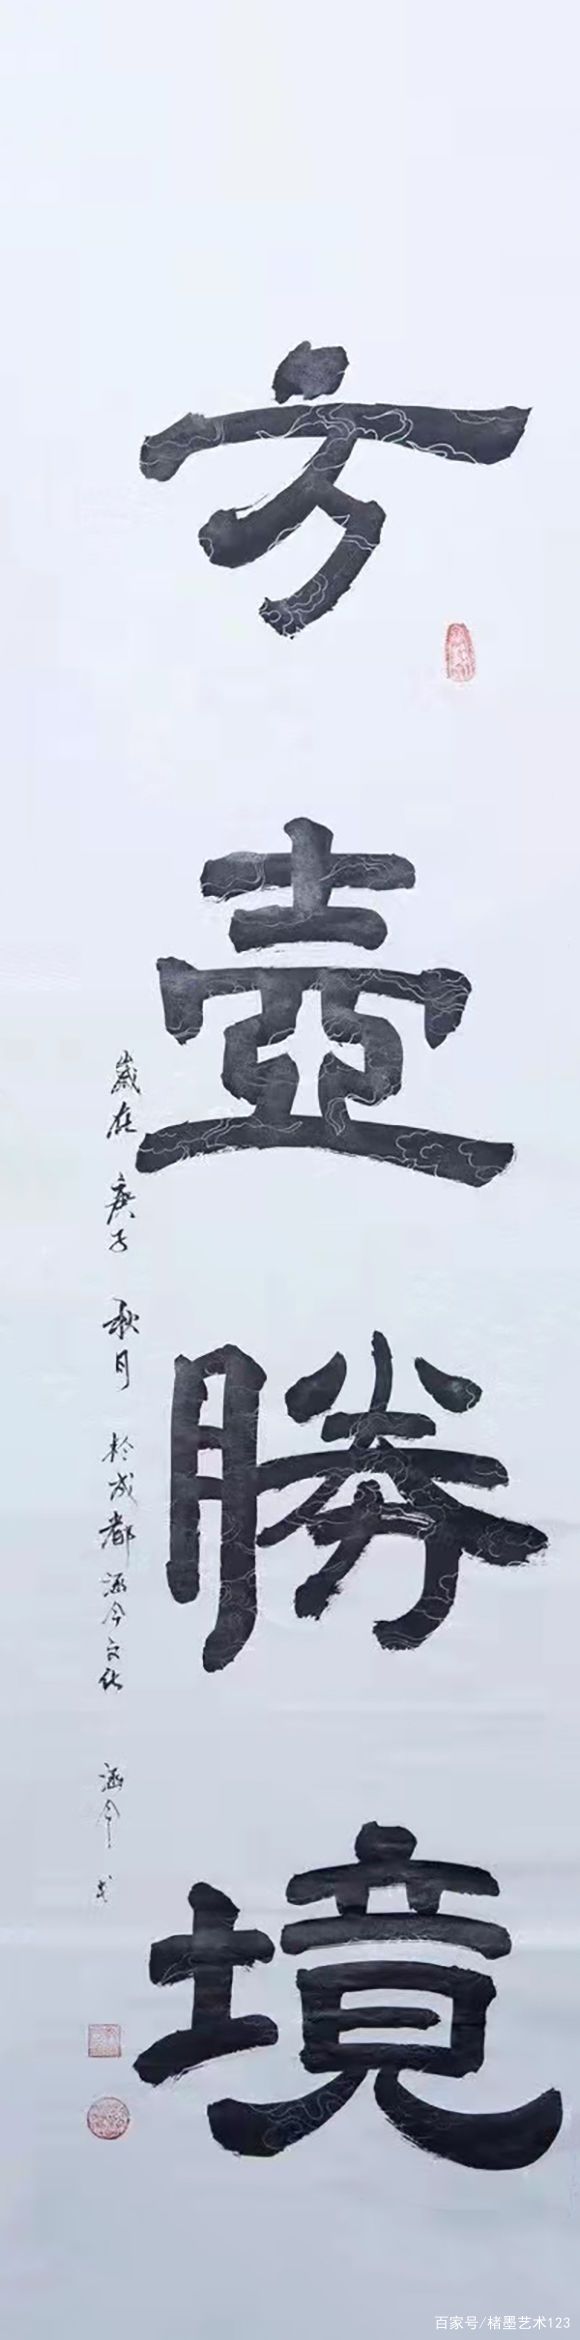 方壺勝境
歲在庚子秋月於成都涵今文化
涵今
百家号/楮墨艺术123